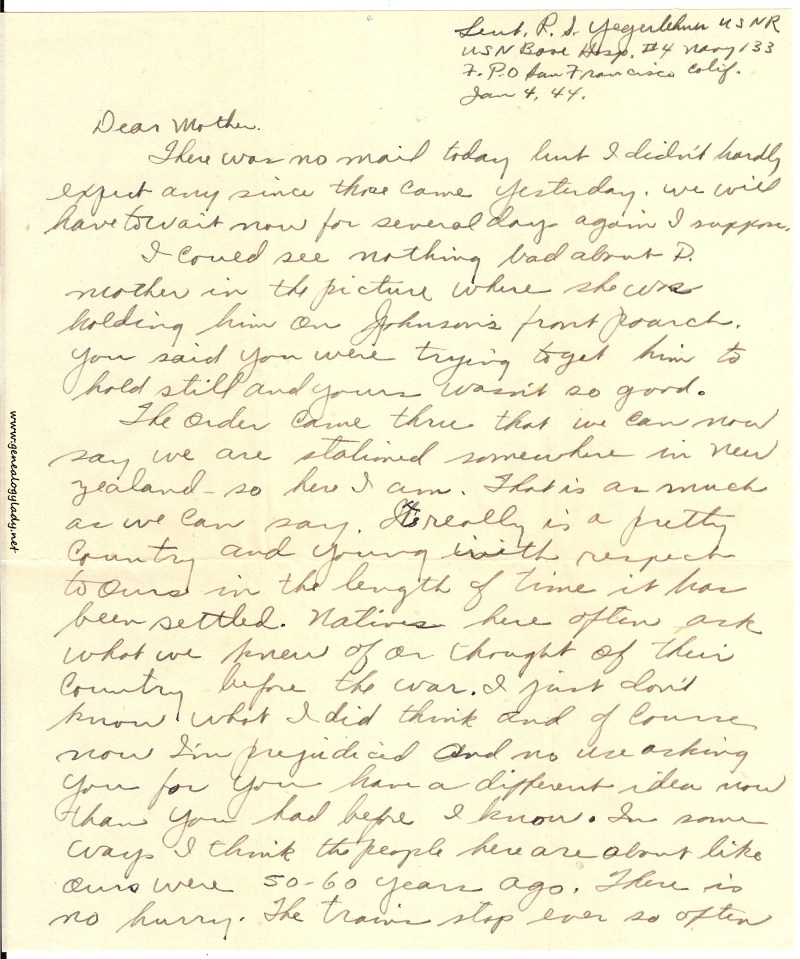 Lieut. R. S. Yegerlehner USNR
USN Base Hosp. #4 Navy 133
F.P.O San Francisco Calif.
Jan 4, 44.
Dear Mother.
There was no mail today but I didn't hardly
expect any since those came yesterday. we will
have to wait now for several days again I suppose.
I could see nothing bad about D.
mother in the picture where she was
holding him on Johnson's front poarch.
You said you were trying to get him to
hold still and yours wasn't so good.
The order came thru that we can now
say we are stationed somewhere in New
Zealand - so here I am. That is as much
as we can say. It really is a pretty
Country and young with respect
to ours in the length of time it has
been settled. Natives here often ask
what we knew of or thought of their
Country before the war. I just don't
know what I did think and of Course
now I'm prejudiced and no use asking
you for you have a different idea now
than you had before I know. In some
ways I think the people here are about like
ours were 50-60 years ago. There is
no hurry. The trains stop ever so often
www.genealogylady.net